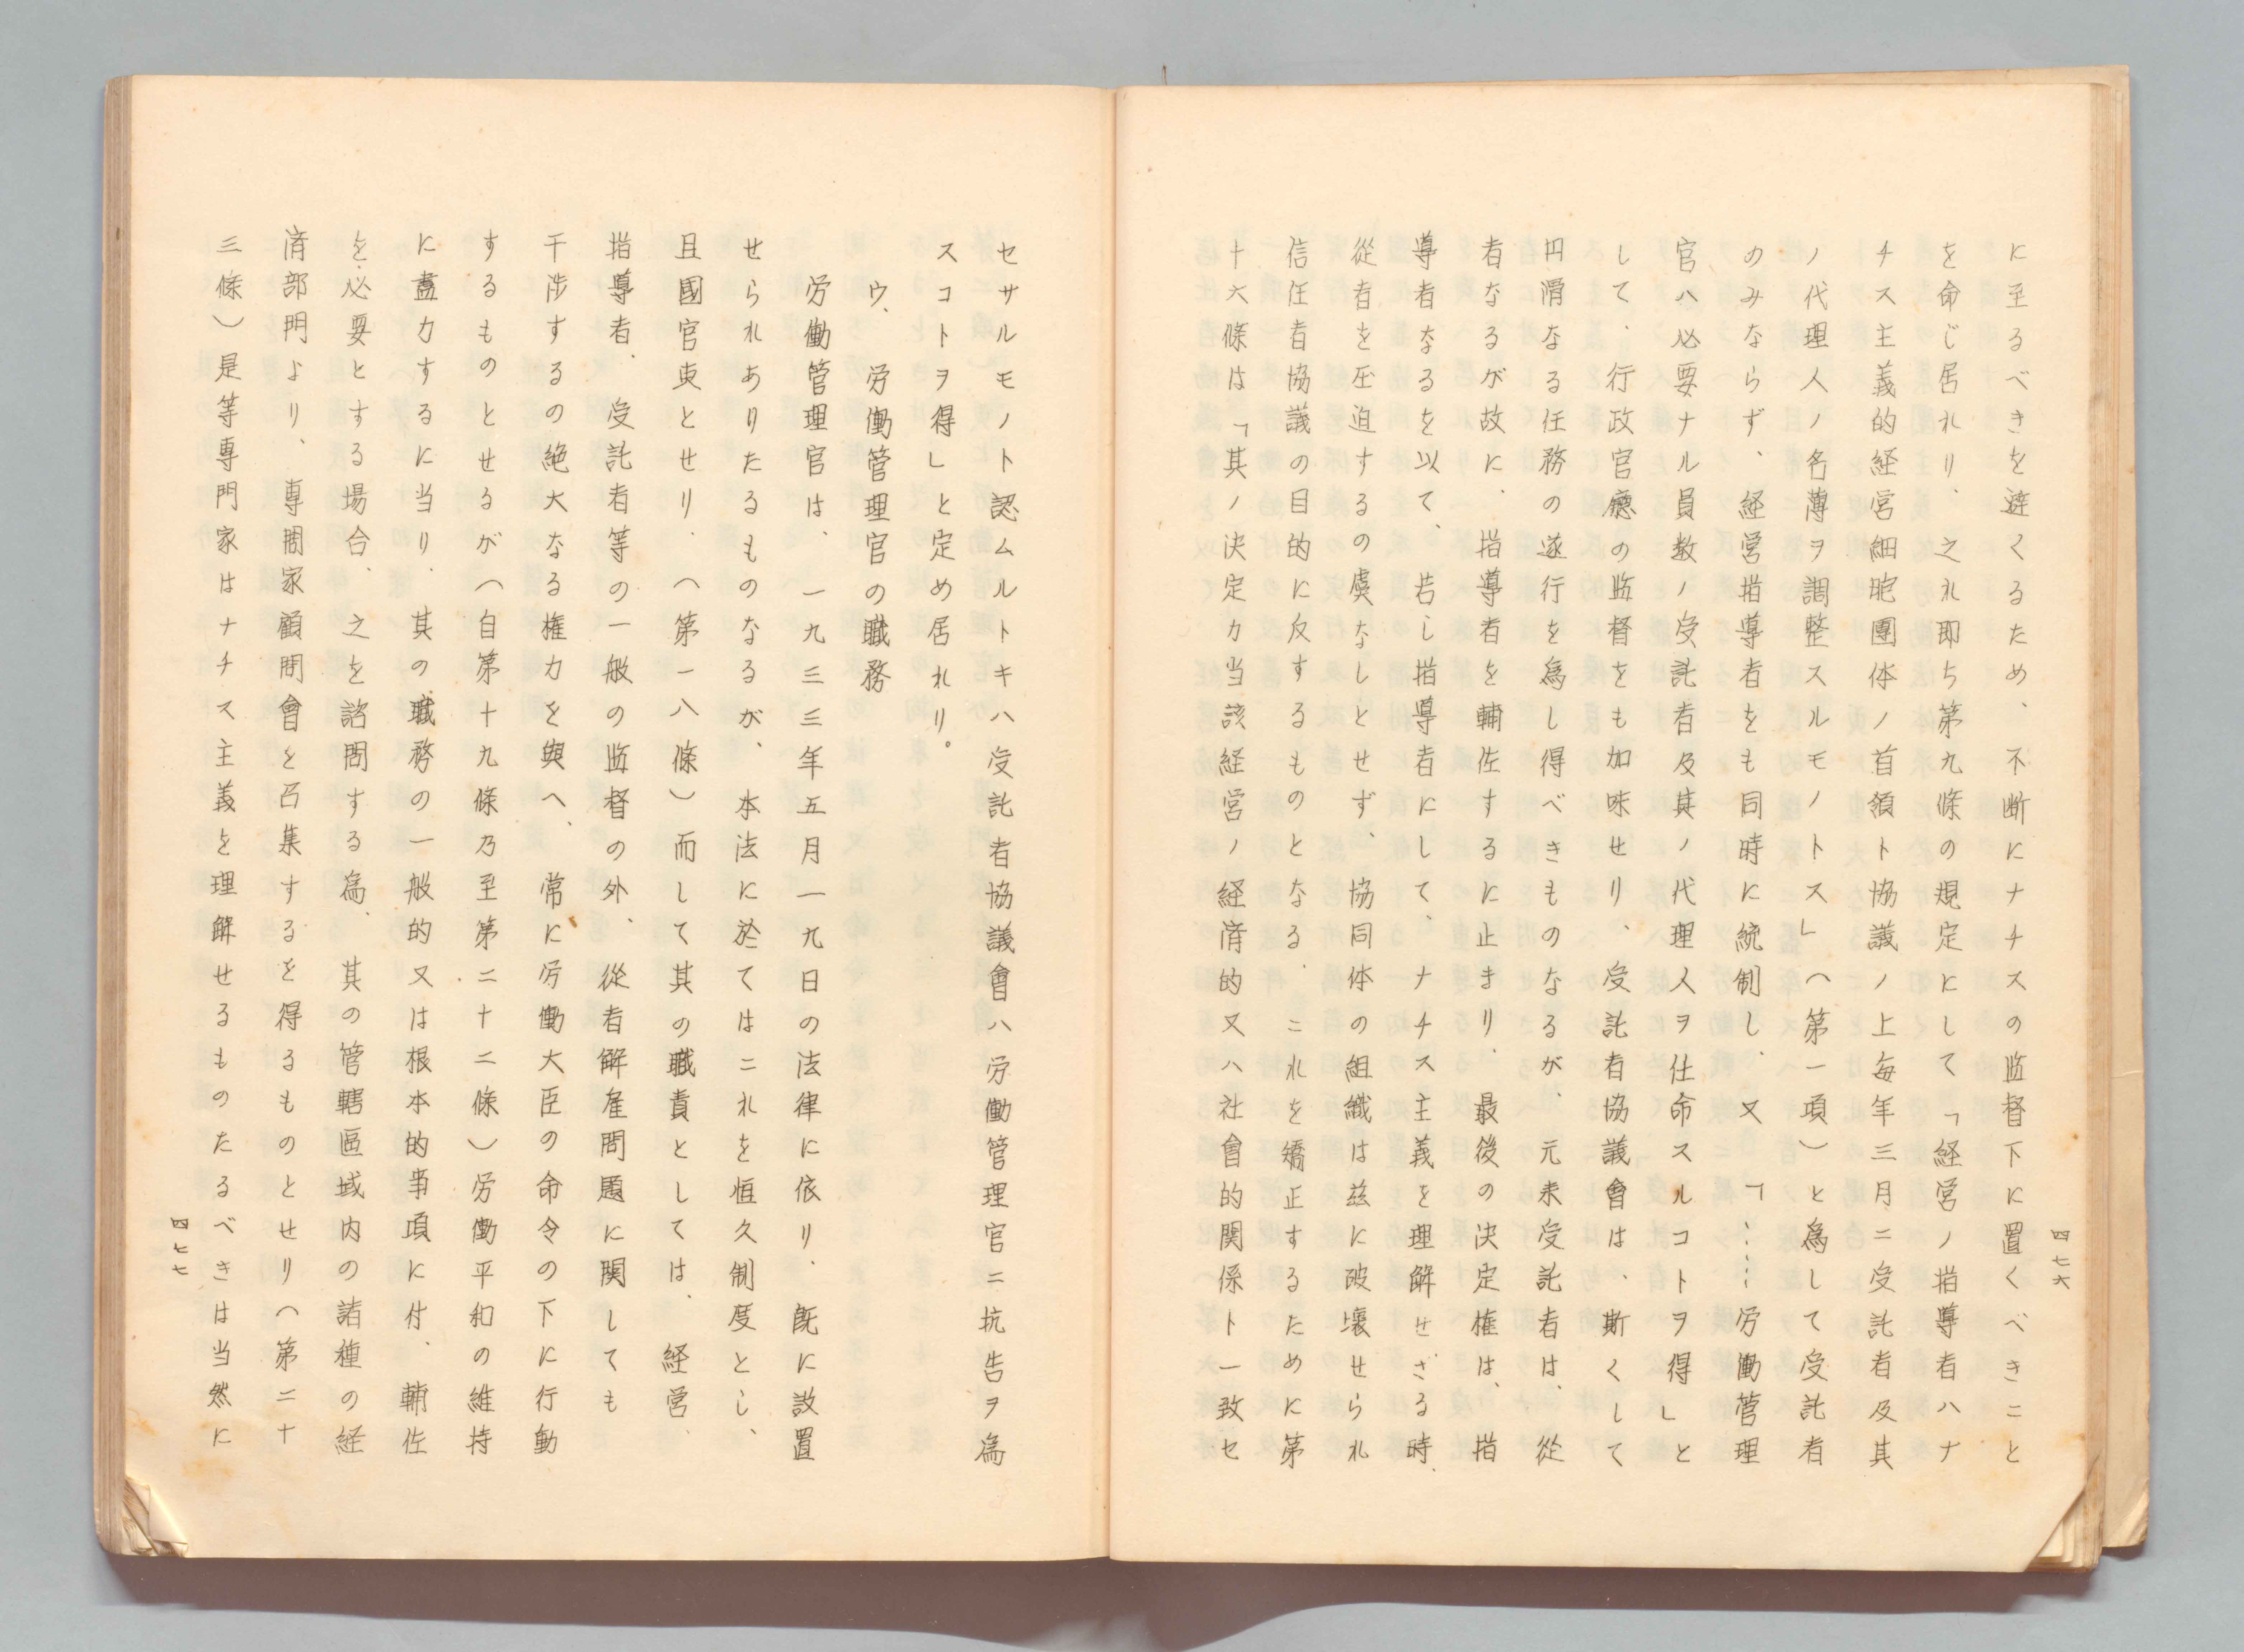 四七六
に至るべきを避くるため、不断にナチスの监督下に置くべきこと
を命じ居れり、之れ即ち第九條の規定にして「経営ノ指導者ハナ
チス主義的経営細胞團体ノ首領ト協議ノ上毎年三月ニ受託者及其
ノ代理人ノ名薄ヲ調整スルモノトス」(第一項)と為して受託者
のみならず、経営指導者をも同時に統制し、又「‥‥‥労働管理
官ハ必要ナル員数ノ受託者及其ノ代理人ヲ仕命スルコトヲ得」と
して、行政官廳の监督をも加味せり、受託者協議會は、斯くして
円滑なる任務の遂行を為し得べきものなるが、元来受託者は、從
者なるが故に、指導者を輔佐するに止まり、最後の決定権は、指
導者なるを以て、若し指導者にして、ナチス主義を理解せざる時、
從者を圧迫するの虞なしとせず、協同体の組織は茲に破壊せられ
信任者協議の目的に反するものとなる、これを矯正するために第
十六條は「其ノ決定カ当該経営ノ経済的又ハ社會的関係ト一致セ
セサルモノト認ムルトキハ受託者協議會ハ労働管理官ニ抗告ヲ為
スコトヲ得」と定め居れり。
ウ、労働管理官の職務
労働管理官は、一九三三年五月一九日の法律に依り、既に設置
せられありたるものなるが、本法に於てはこれを恒久制度とし、
且國官吏とせり、(第一八條)而して其の職責としては、経営、
指導者、受託者等の一般の监督の外、從者解雇問題に関しても
干渉するの絶大なる権力を與へ、常に労働大臣の命令の下に行動
するものとせるが(自第十九條乃至第二十二條)労働平和の維持
に盡力するに当り、其の職務の一般的又は根本的事項に付、輔佐
を必要とする場合、之を諮問する為、其の管轄區域内の諸種の経
済部門より、専門家顧問會を召集するを得るものとせり(第二十
三條)是等専門家はナチス主義を理解せるものたるべきは当然に
四七七